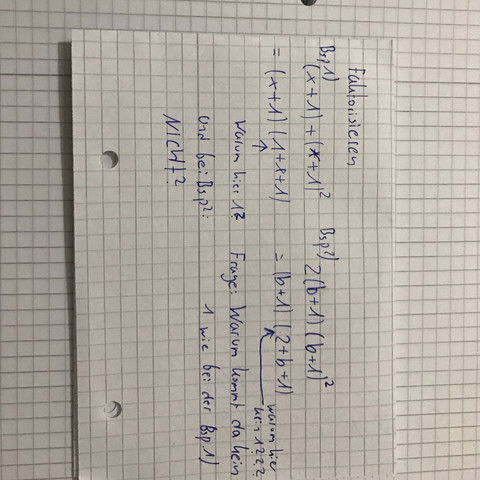 Faktorisieren
Bsp 1)
(x+1) + (x+1)²
= (x+1) (1+x+1)
Warum hier 1?
Und bei Bsp²:
NICHT?
Bsp 2)
2(b+1) (b+1)²
= (b+1) (2+b+1)
Warum hier
kein 1???
Frage: Warum kommt da kein
1 wie bei der Bsp 1)